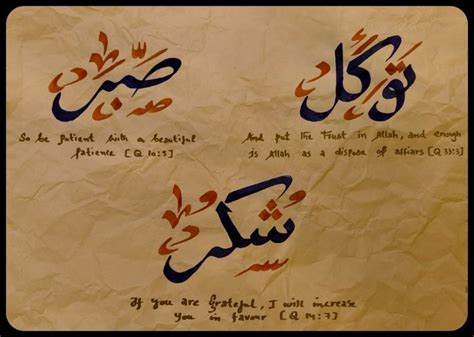 صَبْر
So be patient with a beautiful
patience [Q 70:5]
تَوَكُّل
And put the Trust in Allah, and enough
is Allah as a dispose of affiars [Q 33:3]
شُكْر
If you are grateful, I will increase
you in favour [Q 14:7]